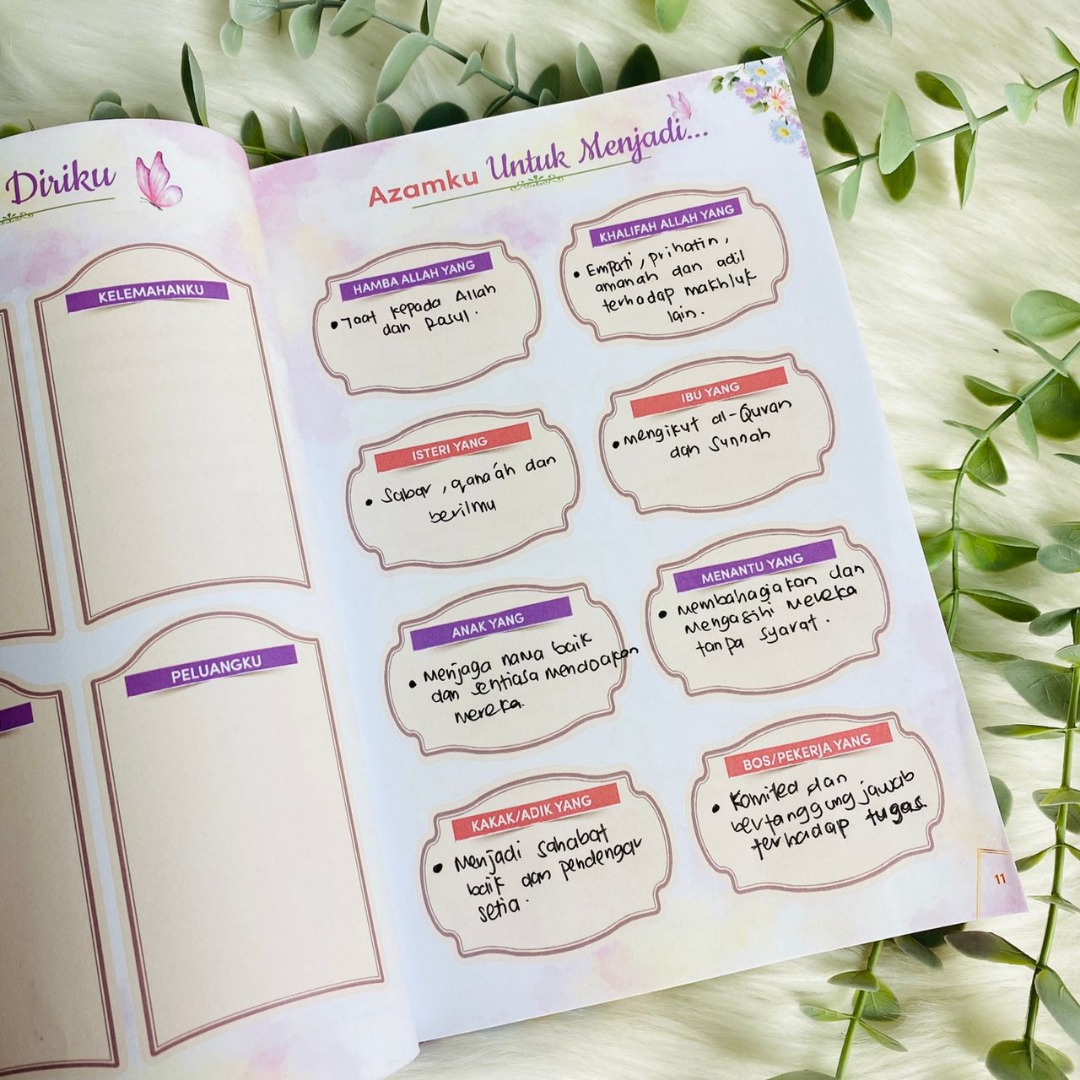 Diriku
KELEMAHANKU
PELUANGKU
Azamku Untuk Menjadi...
HAMBA ALLAH YANG
• Taat kepada Allah
dan Rasul.
KHALIFAH ALLAH YANG
• Empati, prihatin,
amanah dan adil
terhadap makhluk
lain.
ISTERI YANG
• Sabar, qana'ah dan
berilmu
IBU YANG
• mengikut al-Quran
dan Sunnah
ANAK YANG
• Menjaga nama baik
dan sentiasa mendoakan
mereka.
MENANTU YANG
• Membahagiakan dan
mengasihi mereka
tanpa syarat.
KAKAK/ADIK YANG
• Menjadi sahabat
baik dan pendengar
setia.
BOS/PEKERJA YANG
• Komited dan
bertanggungjawab
terhadap tugas
11